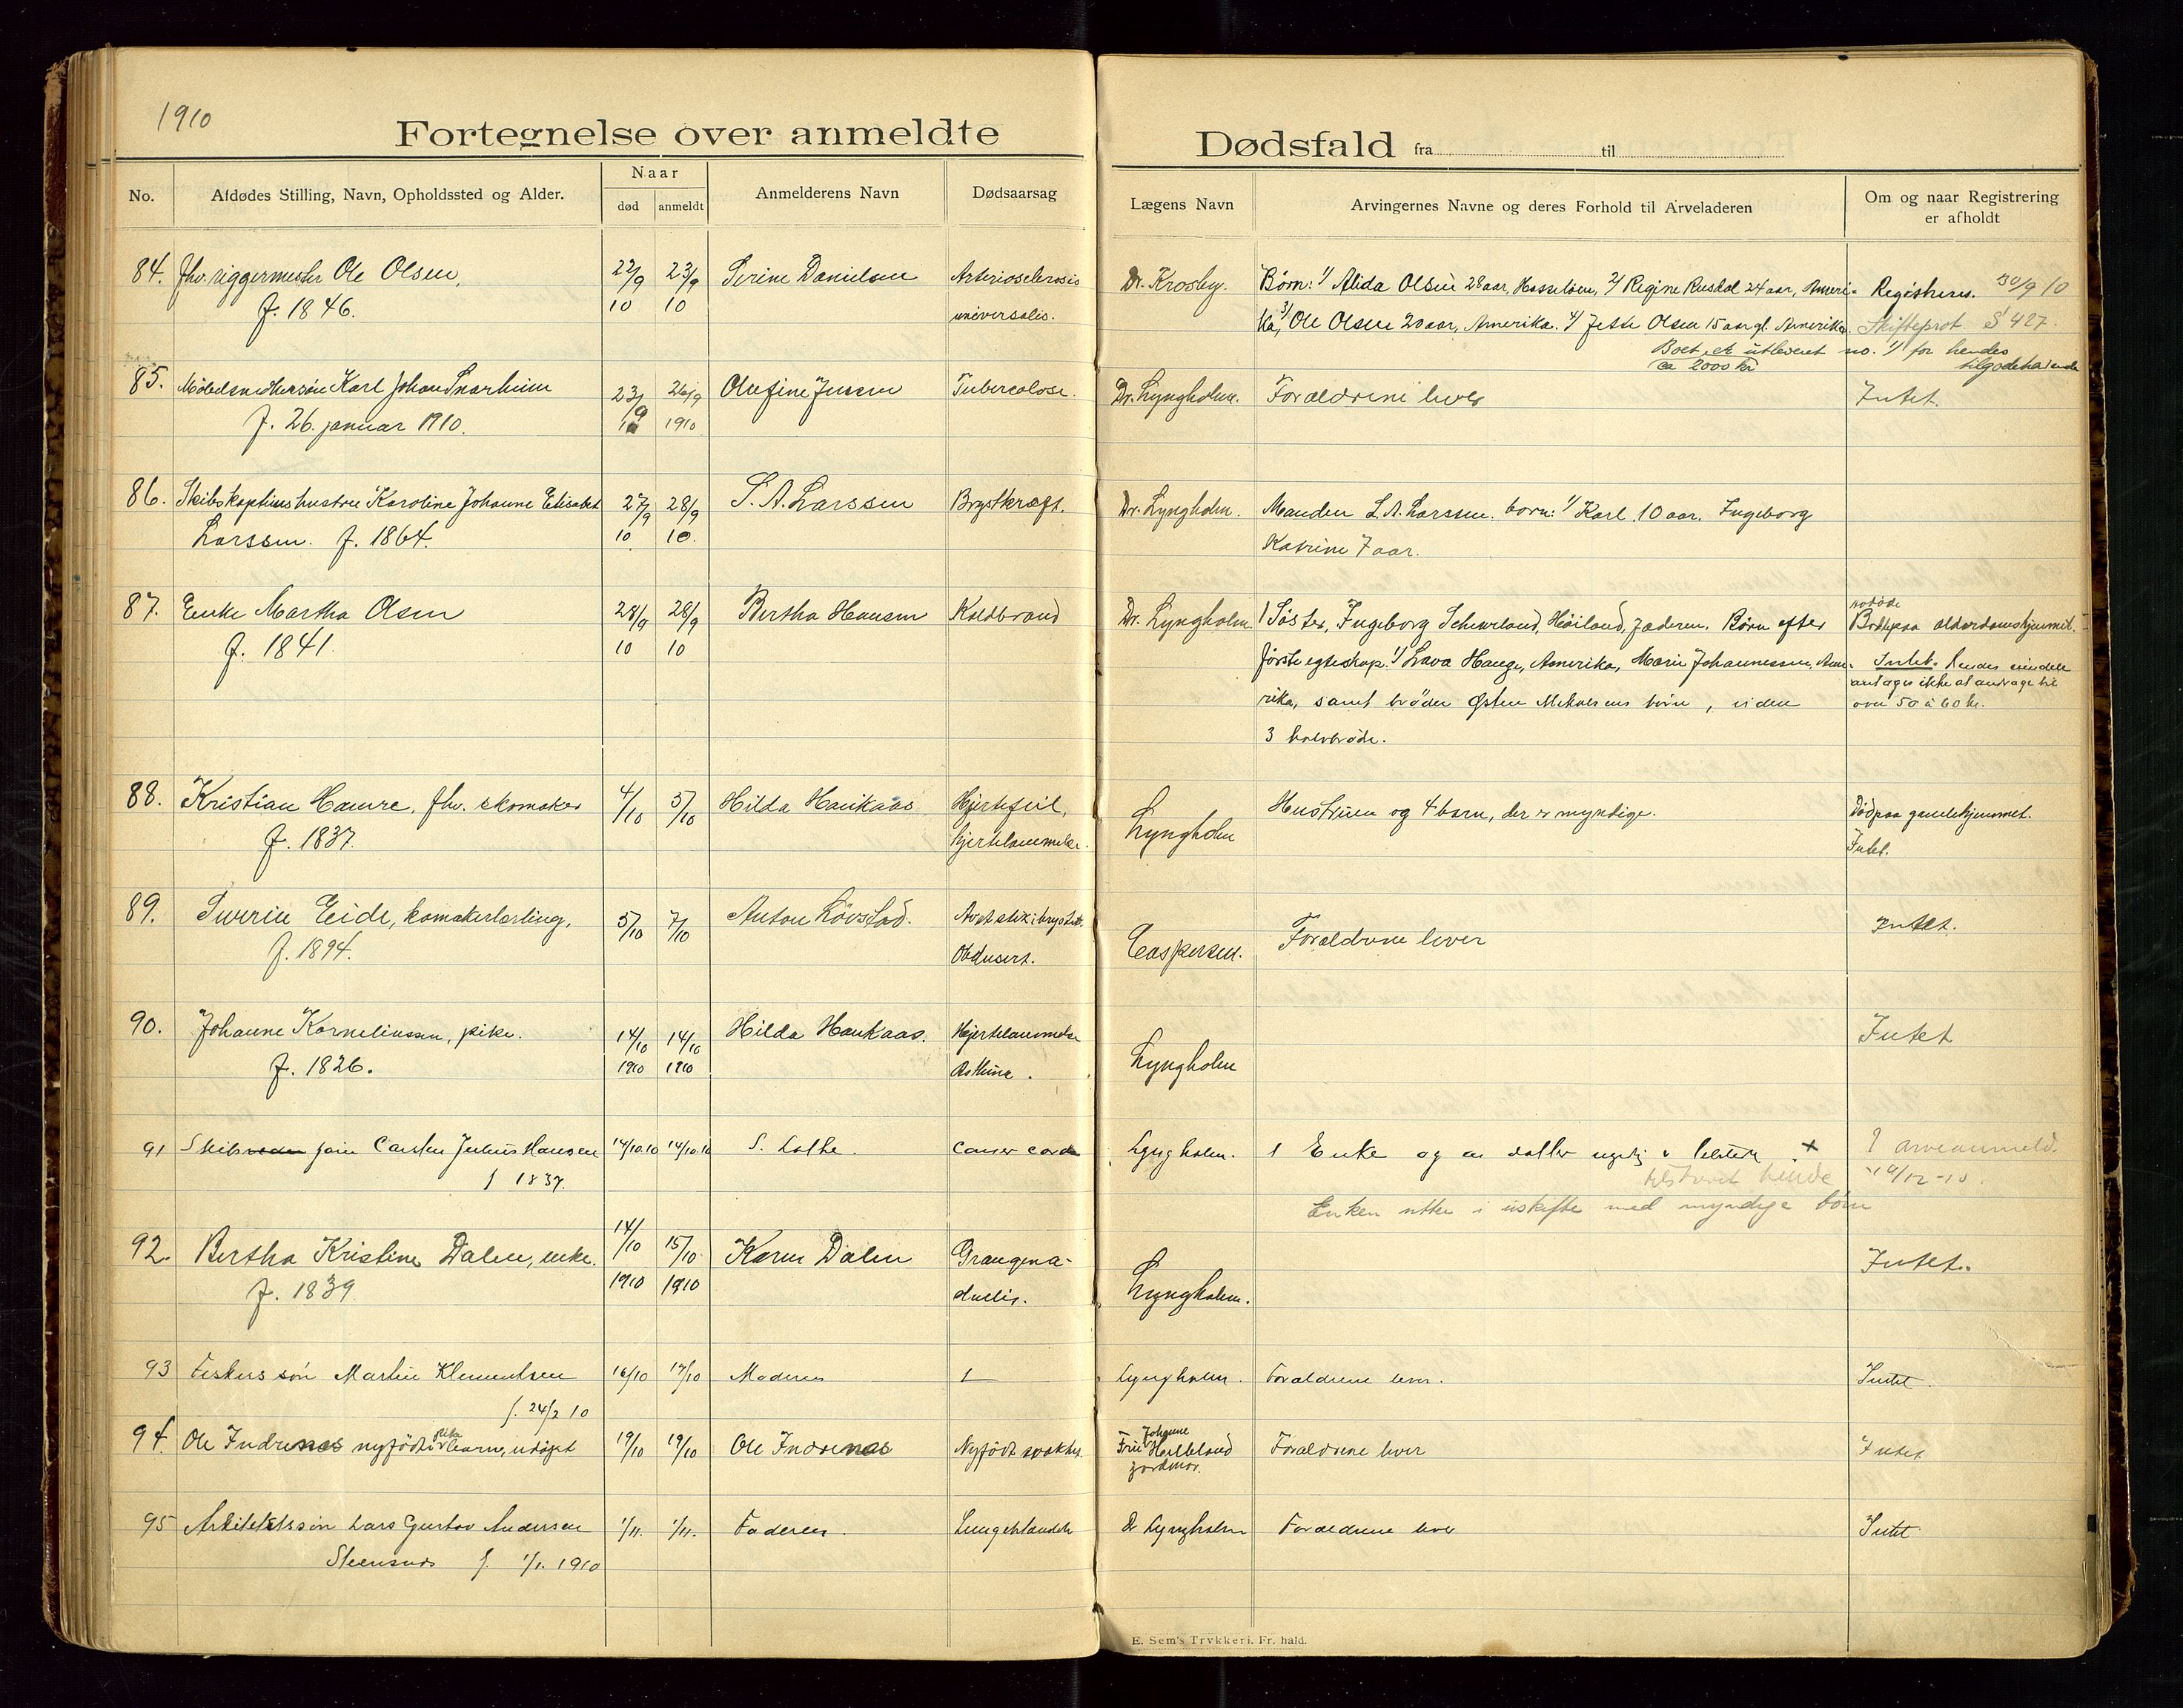 1910
Fortegnelse over anmeldte Dødsfald fra til
No. Afdødes Stilling, Navn, Opholdssted og Alder. Naar død anmeldt Anmelderens Navn Dødsaarsag Lægens Navn Arvingernes Navne og deres Forhold til Arveladeren Om og naar Registrering er afholdt
84. fhv. riggermester Ole Olsen, 22/9 23/9 Serine Danielsen Arteriosclerosis Dr. Krosby. Børn: 1/ Alida Olsen 28 aar, Hasseløen, 2/ Regine Rusdal 24 aar, Ameri- Registreres. 30/9 10
f. 1846. 10 10 universalis. ka, 3/ Ole Olsen 20 aar, Amerika. 4/ Jette Olsen 15 aar gl. Amerika. Skifteprot. S 427.
Boet er utleveret no. 1/ for hendes
ca 2000 kr tilgodehavende
85. Møbelsnedkersøn Karl Johan Snarheim 23/9 26/9 Olefine Jensen Tuberculose. Dr. Lyngholm. Forældrene lever Intet.
f. 26. januar 1910. 10 1910
86. Skibskapteinshustru Karoline Johanne Elisabet 27/9 28/9 L. A. Larssen Brystkræft. Dr. Lyngholm. Manden L. A. Larssen. børn: 1/ Karl 10 aar. Ingeborg
Larssen. f. 1864. 10 10. Katrine 7 aar.
87. Enke Martha Olsen 28/9 28/9 Bertha Hansen Koldbrand Dr. Lyngholm 1 Søster, Ingeborg Høiland, Jæderen. Børn efter alderdomshjemmet.
f. 1841. 10 10 første egteskap. 1/ Lava Hauge, Amerika, Marie Johannessen, Ame- Intet. Hendes eiendele
rika, samt broder Østen børn, antages ikke at andrage til
3 halvbrødre. over 50 à 60 kr.
88. Kristian Hamre, fhv. skomaker 4/10 5/10 Hilda Haukaas Hjertefeil, Lyngholm Hustruen og 4 børn, der er myndige. Død paa gamlehjemmet.
f. 1837. hjertelammelse. Intet.
89. Severin Eide, skomakerlærling, 5/10 7/10 Anton Løvstad. Casperson. Forældrene lever Intet.
f. 1894. Obducert.
90. Johanne Korneliussen, pike. 14/10 14/10 Hilda Haukaas. Hjertelammelse Lyngholm Intet
f. 1826. 1910 1910 Asthma.
91 Skibsreder Carsten Julius Hansen 14/10.10 14/10.10 S. Lothe. Cancer Lyngholm. 1 Enke og en datter arveanmeld.
f 1837. 19/12-10.
Enken sitter i uskifte med myndige børn
92. Bertha Kristine Dalen, enke. 14/10 15/10 Karen Dalen Lyngholm. Intet.
f. 1839. 1910 1910
93 Fiskers søn Martin Klementsen 16/10 17/10 Moderen Lyngholm. Forældrene lever. Intet.
f. 24/2 10
94. Ole Indrenæs nyfødte pikebarn, udøpt 19/10 19/10 Ole Indrenæs Nyfødt svakhet. Fru Johanne Helleland jordmor. Forældrene lever Intet
95 Arkitektssøn Lars Gustav Andersen 1/11. 1/11. Faderen. Dr Lyngholm Forældrene lever Intet
Steensnæs f. 1/1. 1910
E. Sem's Trykkeri, Fr.hald.